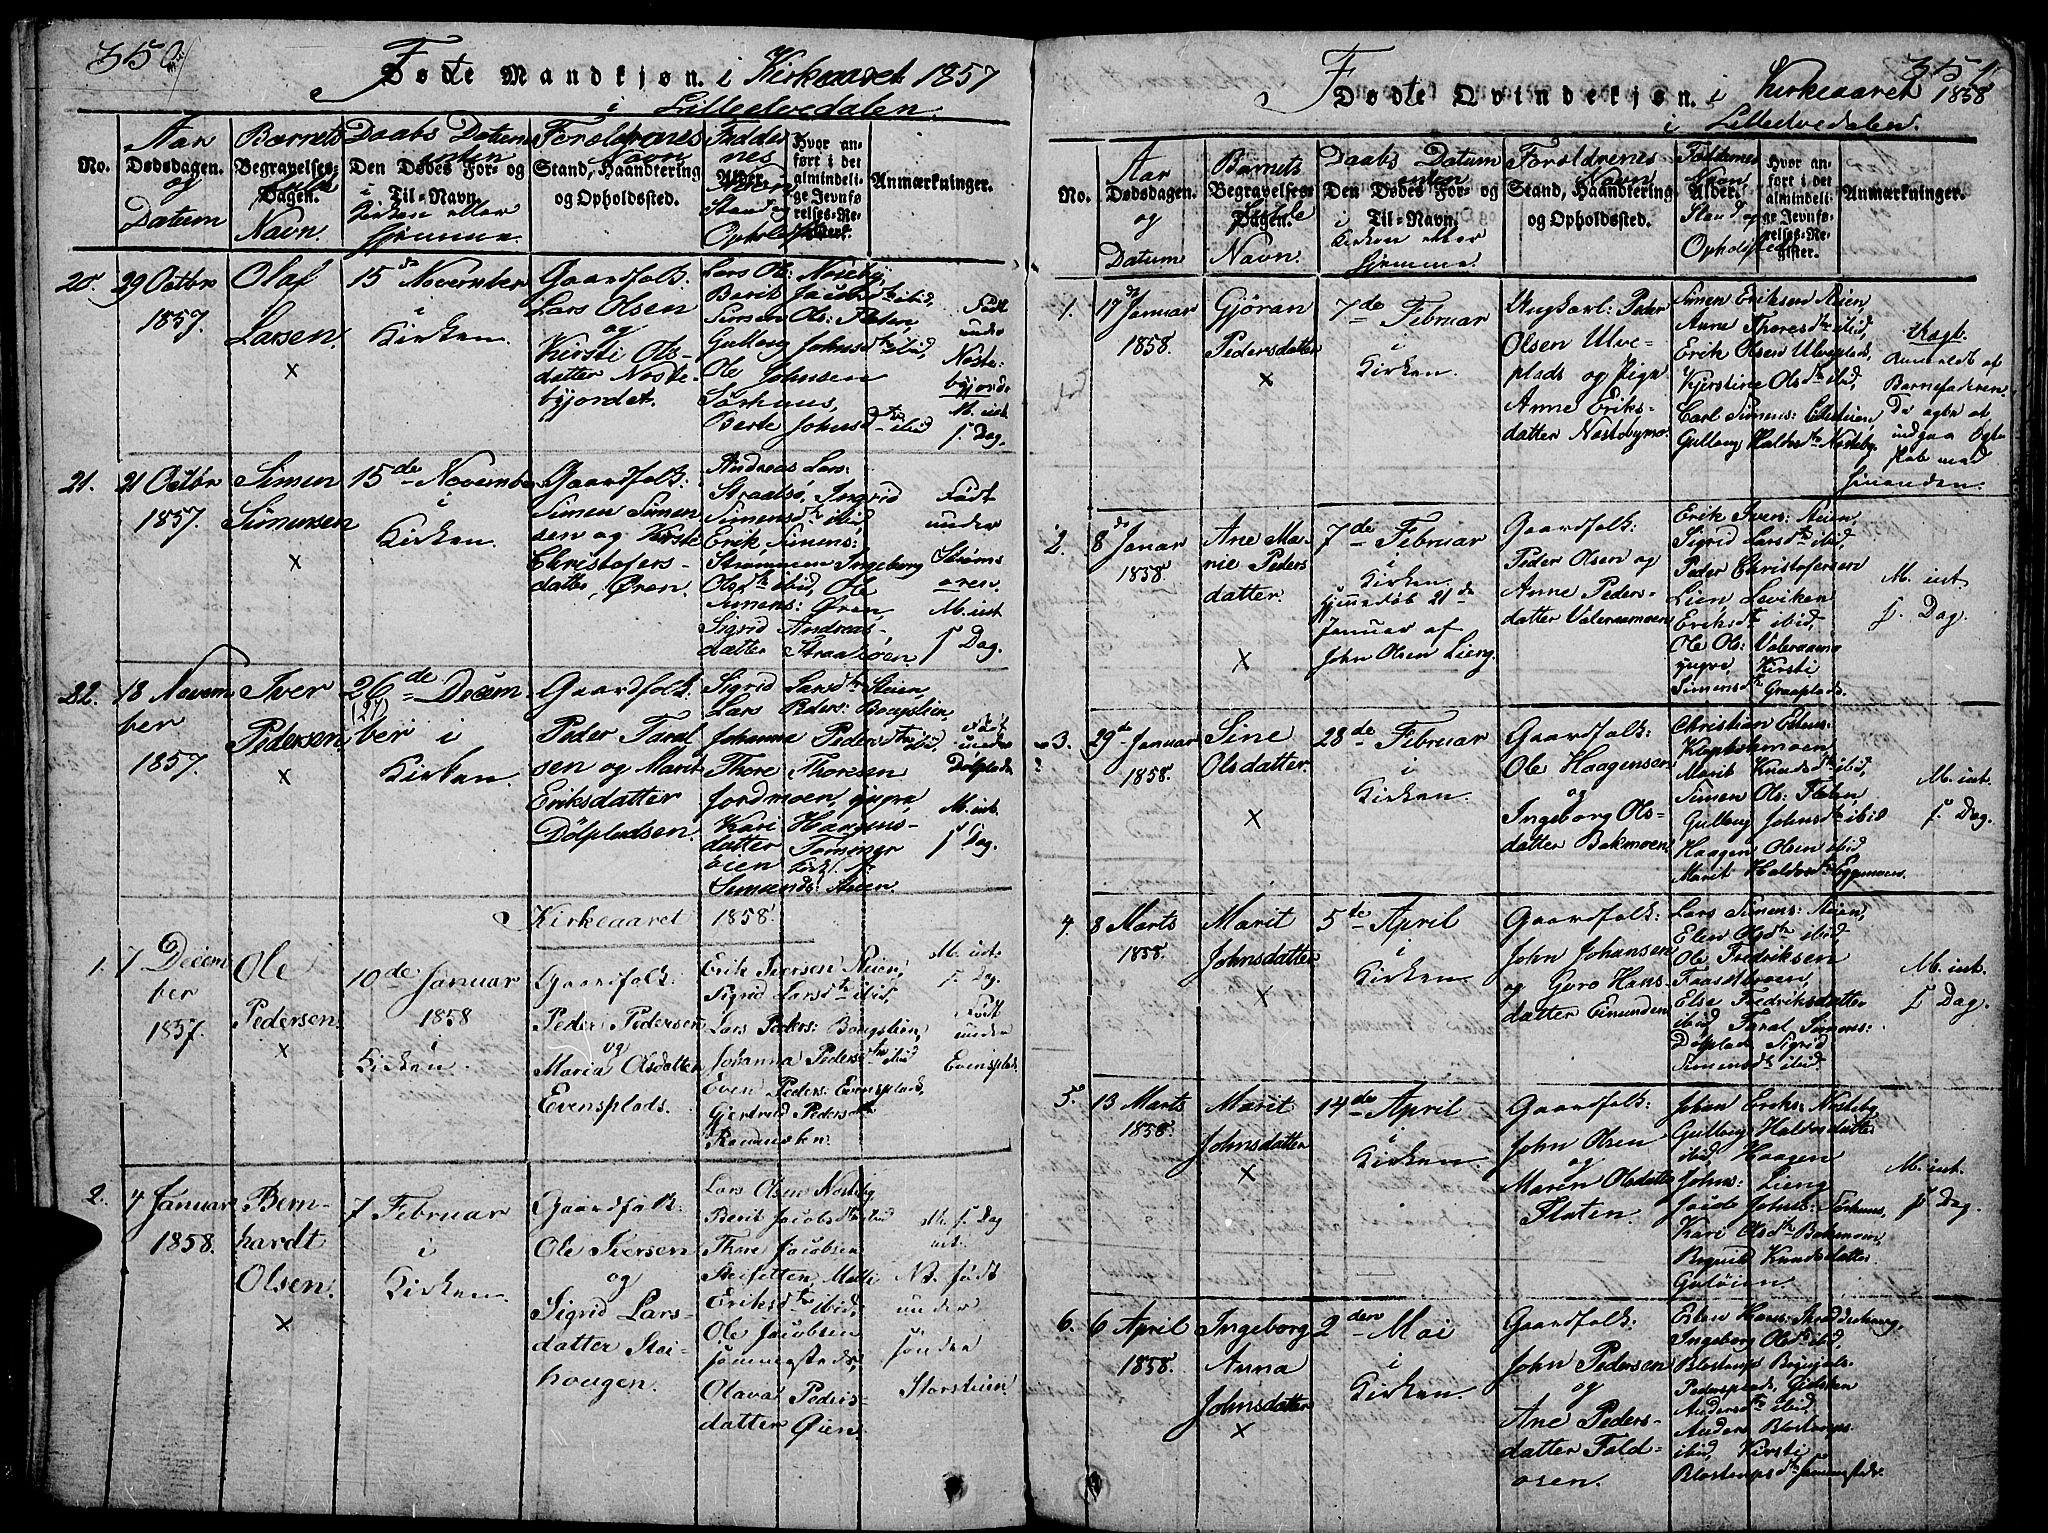 350
Fødte Mandkjøn. i Kirkeaaret 1857
i Lilleelvedalen.
No.
Aar
Dødsdagen.
og
Datum
Barnets
Begravelses-
Dagen.
Navn.
Daabs Datum
enten
Den Dødes For- og
Til-Navn.
i
Kirken eller
hjemme.
Forældrenes
Navn
Stand, Haandtering
og Opholdssted.
Fadder
nes
Alder.
Navn
Stand og
Ophold
Hvor an-
ført i det
almindeli-
ge Jevnfø-
relses-Re-
gister.
Anmærkninger.
20.
29 Octbr
1857.
Olaf
Larsen.
x
15de November
i
Kirken.
Gaardfolk:
Lars Olsen
og
Kirsti Ols-
datter Noste-
byjordet.
Lars Ol: Nosteby,
Berit Jacobsdtr ibid,
Simen Ols: Floten,
Gulborg Johnsdtr ibid,
Ole Johnsen
Sørhuus,
Berte Johnsdtr ibid
Født
under
Noste-
byjord:
M. int
f. Dag.
21.
21 Octbr
1857.
Simen
Simensen
x
15de November
i
Kirken.
Gaardfolk:
Simen Simen
sen og Kirsti
Christofers-
datter, Øren.
Andreas Lars:
Straalsø, Ingrid
Simensdtr ibid,
Erik Simens:
Strømmen Ingeborg
Olsdtr ibid, Ole
Simens: Øren,
Sigrid Andreas-
datter Straalsøen.
Født
under
Strøms
øren.
M. int
f. Dag.
22.
18 Novem
ber
1857.
Iver
Pedersen
x
26de Decem
(27)
ber i
Kirken.
Gaardfolk:
Peder Taral
sen og Marit
Eriksdatter
Dølpladsen.
Sigrid Larsdtr Steien,
Lars Peders: Bougstien,
Johanna Pedersdtr ibid,
Thore Thoresen
Jordmoen, yngre
Kari Haagens-
datter
Semunds: Steien.
Født
under
Dølplads
M. int.
f. Dag.
Kirkeaaret 1858.
1.
7 Decem
ber
1857.
Ole
Pedersen.
x
10de Januar
1858
i
Kirken.
Gaardfolk:
Peder Pedersen
og
Maria Olsdatter
Evensplads.
Erik Iversen Steien,
Sigrid Larsdtr ibid,
Lars Peders: Bougstien,
Johanna Pedersdtr ibid
Even Peders: Evensplads,
Gjertrud Pedersdtr
M. int.
f. Dag.
Født
under
Evensplads
2.
4 Januar
1858.
Bern-
hardt
Olsen.
x
7 Februar
i
Kirken.
Gaardfolk
Ole Iversen
og
Sigrid Lars-
datter Stai-
hougen.
Lars Olsen Nosteby
Berit Jacobsdtr ibid
Thore Jacobsen
Eriksdtr ibid,
Ole Jacobsen
Olava Peders-
datter Øien.
M. f. Dag
int.
NB. født
under
søndre
Storstuen
351
Fødte Qvindekjøn. i Kirkeaaret 1858
i Lilleelvedalen.
No.
Aar
Dødsdagen.
og
Datum
Barnets
Begravelses-
Dagen.
Navn.
Daabs Datum
enten
Den Dødes For- og
Til-Navn.
i
Kirken eller
hjemme.
Forældrenes
Navn
Stand, Haandtering
og Opholdssted.
Faddernes
Navn
Alder.
Stand og
Opholdsted
Hvor an-
ført i det
almindeli-
ge Jevnfø-
relses-Re-
gister.
Anmærkninger.
1.
17de Januar
1858.
Gjøran
Pedersdatter
x
7de Februar
i
Kirken.
Ungkarl: Peder
Olsen Ulve-
plads og Pige
Anne Eriks-
datter Nostebymo
Simen Eriksen Steien
Anne Thoresdtr ibid,
Erik Olsen Ulveplads,
Kjerstine Olsdtr ibid,
Carl Simens: Lillesteien,
Gulborg Haldsdtr Nosteby
Uægte.
Anmeldt af
Barnefaderen.
De agte at
indgaa Ægte
skab med
hinanden.
2.
8de Januar
1858.
Ane Ma-
rie Peders
datter.
x
7de Februar
i
Kirken.
Hjemmedøb 21de
Januar af
John Olsen Lieng.
Gaardfolk:
Peder Olsen og
Anne Peders-
datter Valeraamoen
Erik Iver: Steien,
Sigrid Larsdtr ibid,
Peder Christofersen
Lien,
Eriksdtr ibid,
Ole Ol: Valeraamo
yngre, Kirsti
Simensdtr Graaplads.
M. int.
f. Dag.
3.
29de Januar
1858.
Sine
Olsdatter.
x
28de Februar
i
Kirken.
Gaardfolk:
Ole Haagensen
og
Ingeborg Ols-
datter Bakmoen
Christian
Marit Knudsdtr ibid,
Simen Ols: Floten,
Gulborg Johnsdtr ibid
Haagen Olsen ibid
Marit Haldorsdtr Eggemoen.
M. int.
f. Dag.
4.
8 Marts
1858.
Marit
Johnsdatter
x
5te April
i
Kirken.
Gaardfolk:
John Johansen
og Guro Hans
datter Eimunden
Lars Simens: Steien,
Elen Olsdtr ibid,
Ole Fredriksen
Else Fredriksdatter
ibid, Taral Simens:
Dølplads, Sigrid
Simensdtr ibid.
M. int.
f. Dag.
5.
13 Marts
1858.
Marit
Johnsdatter
x
14de April
i
Kirken.
Gaardfolk:
John Olsen
og
Maren Olsdatter
Floten.
Johan Eriks: Nosteby,
Gulborg Haldorsdatter
ibid, Haagen
Johns: Lieng
Kari Olsdtr Bakmoen,
Knudsdatter
M. int.
f. Dag.
6.
6 April
1858.
Ingeborg
Anna
Johnsdatter
x
2den Mai
i
Kirken.
Gaardfolk:
John Pedersen
og
Ane Peders-
datter Fold-
osen.
Ingeborg Olsdtr ibid,
Andersdtr ibid,
ibid, Kirsti